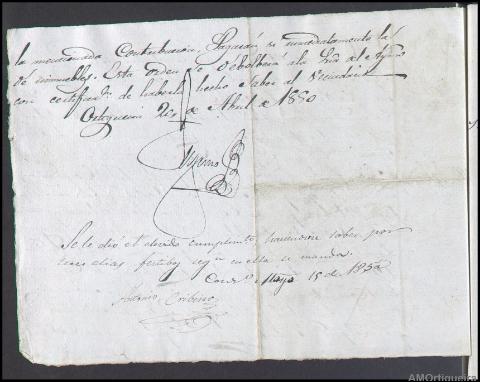 la mencionada Contribucion, Pagarán se mandatamento la
de inmuebles. Esta orden se debolberá á la del Ayto
con certificacn. de haberla hecho saber al Vecindario
Ortigueira de Abril de 1850
Se le dió el devido cumplimto. haciendose saber por
tres dias festibos segn. en ella se manda.
Mayo 15 de 1850
Antonio Cribeiro
AMOrtigueira